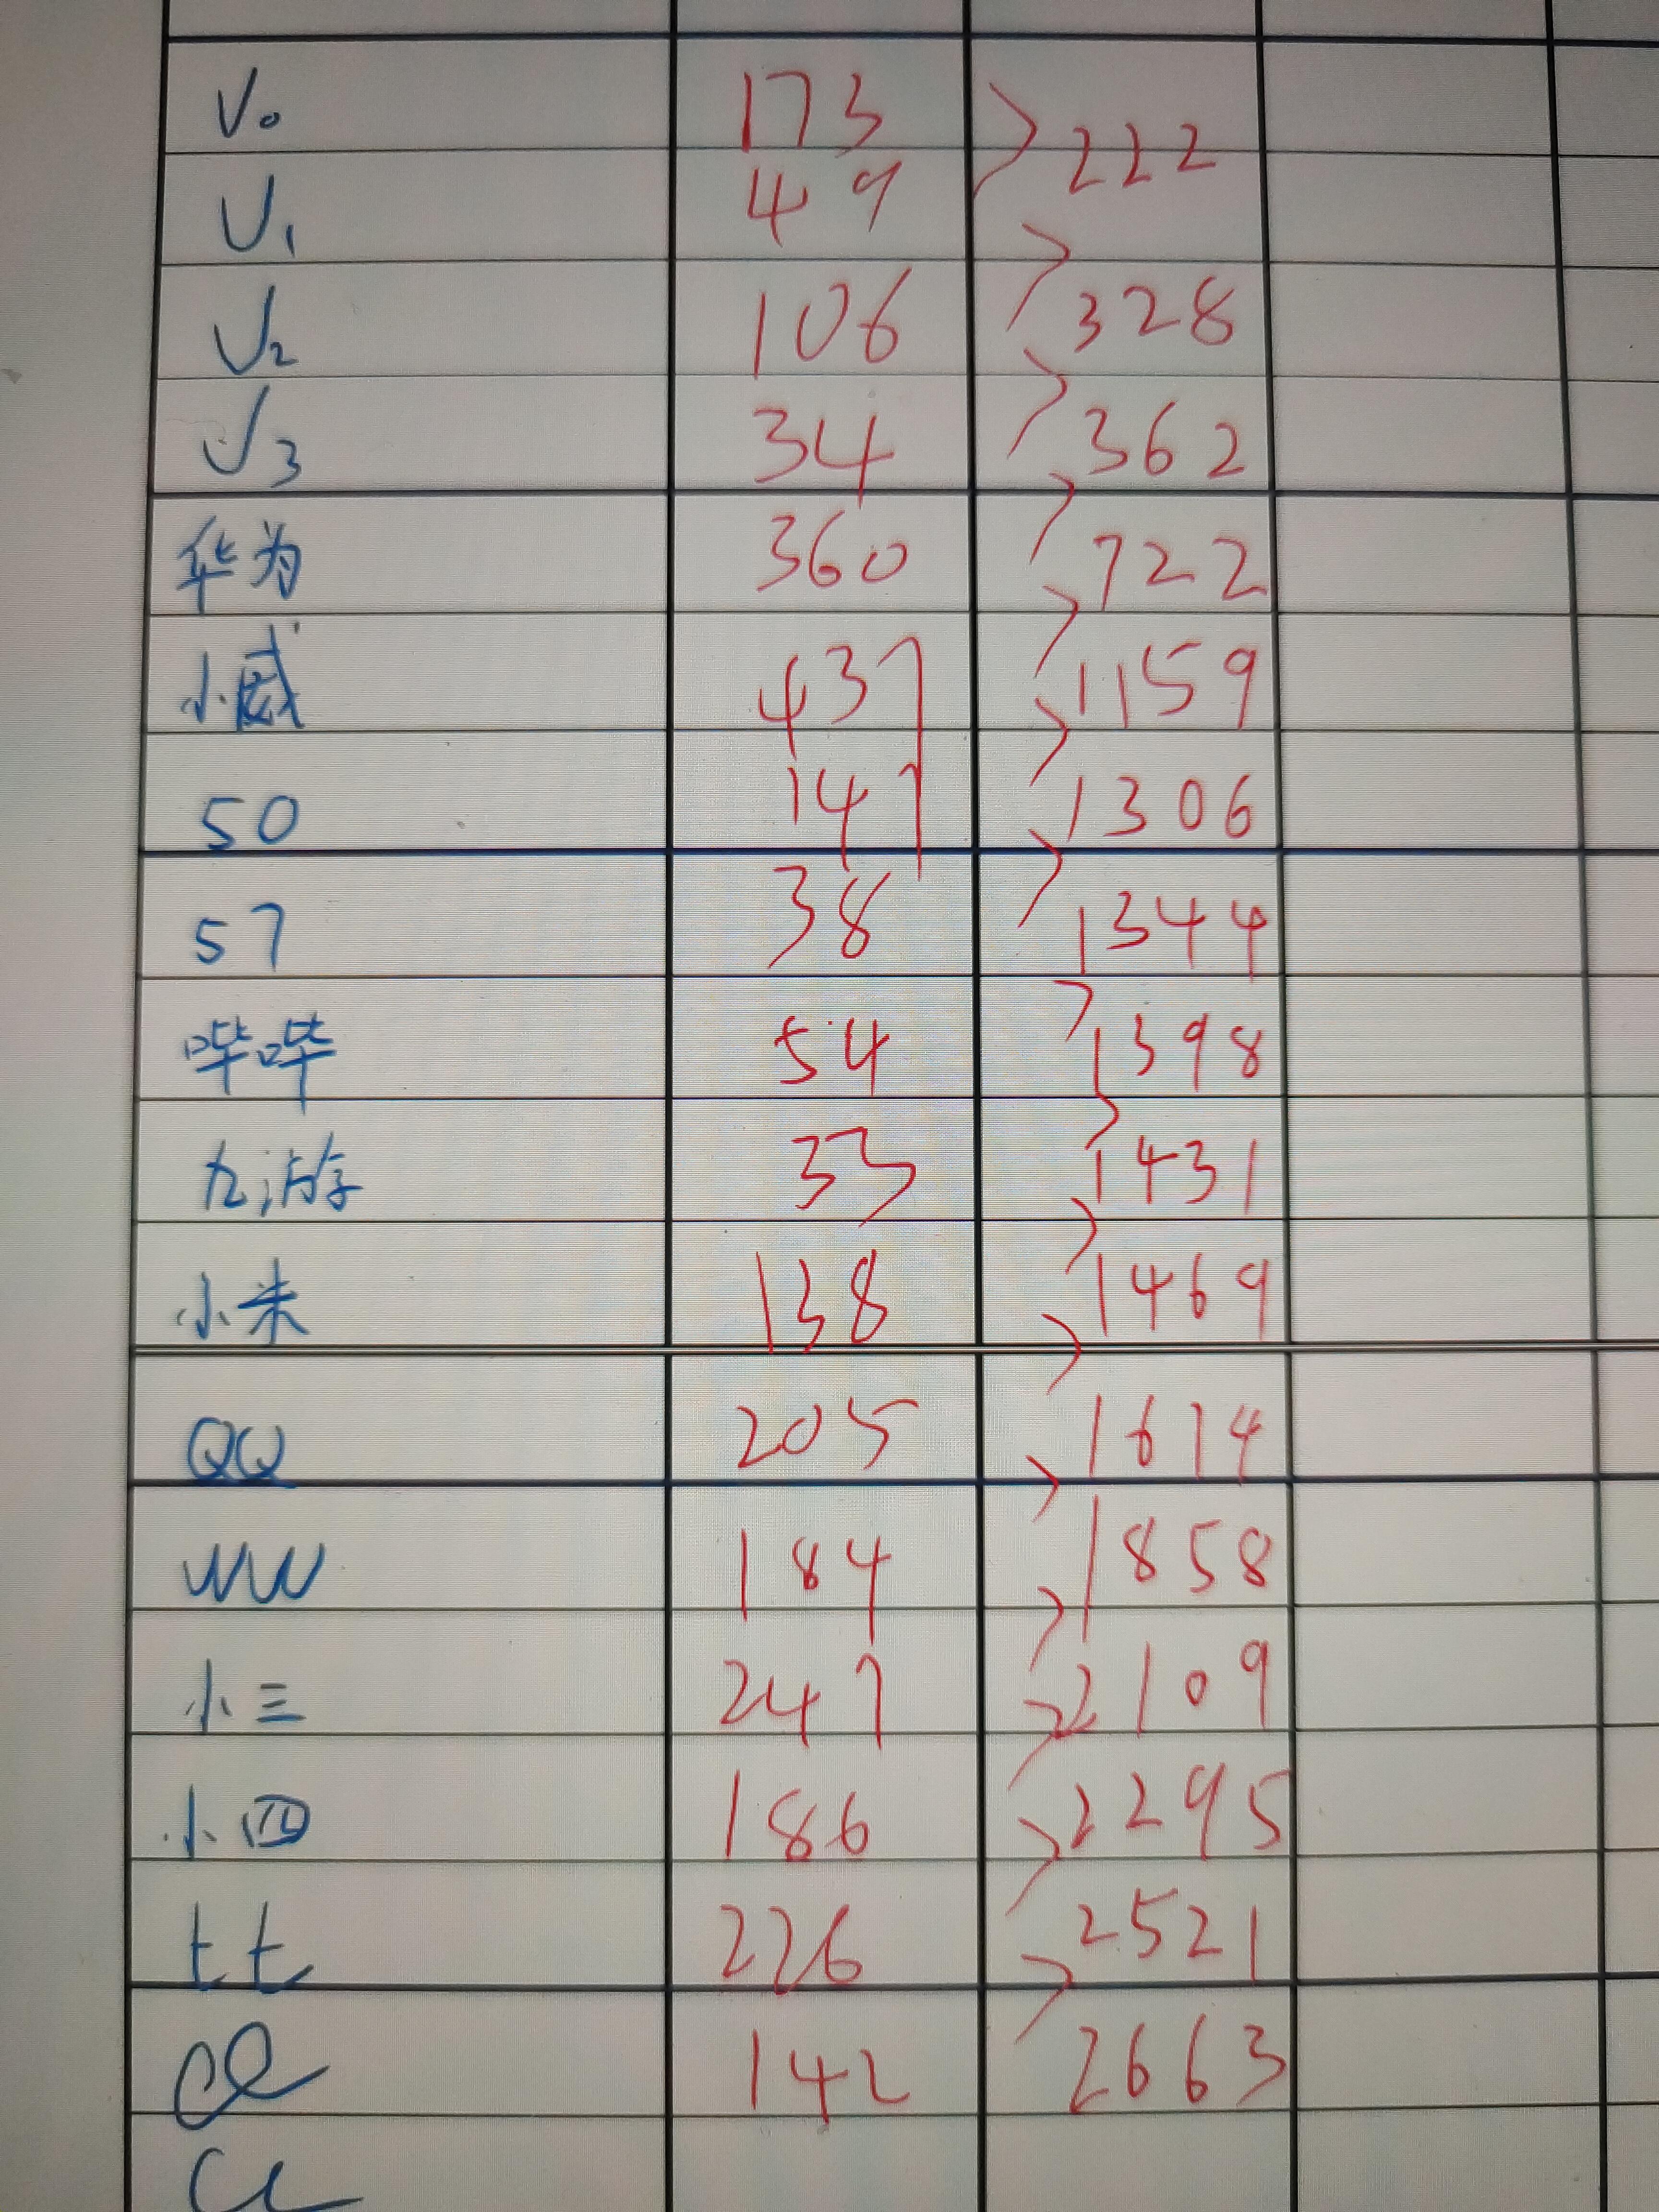 V0 173 > 222
V1 49
V2 106 > 328
V3 34 > 362
华为 360 > 722
小威 437 > 1159
50 147 > 1306
57 38 > 1344
哔哔 54 > 1398
九游 33 > 1431
小米 138 > 1469
QQ 205 > 1674
WW 184 > 1858
小三 247 > 2109
小四 186 > 2295
tt 226 > 2521
142 > 2663